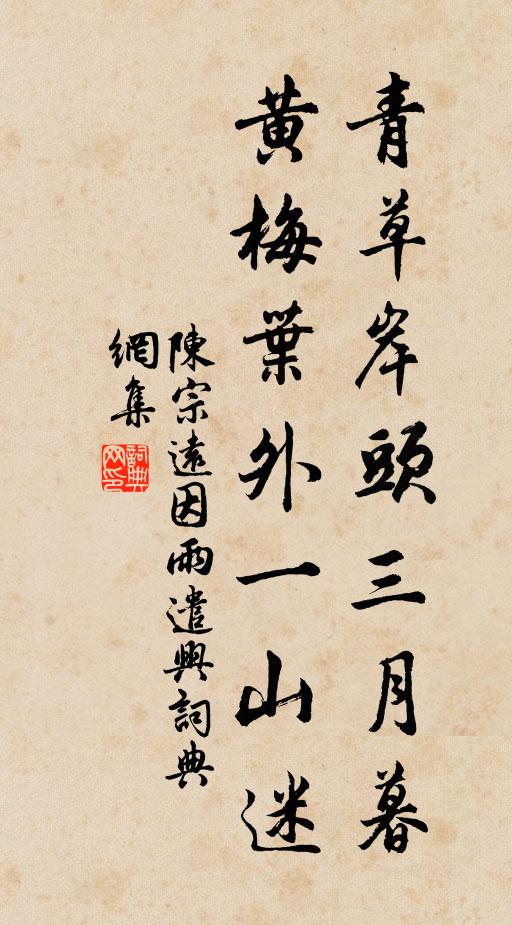 青草岸頭三月暮
黄梅葉外一山迷
陳宗遠因雨遣興詞典
網集
詞典网印